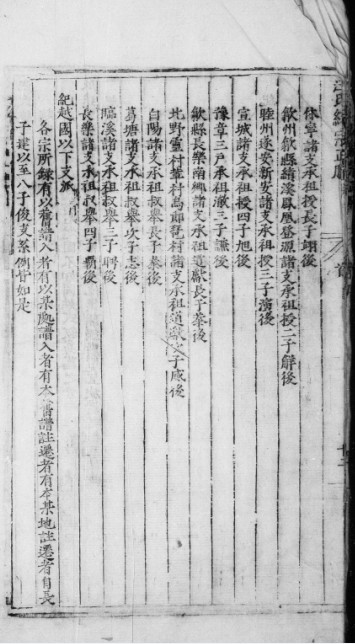 休寧諸支承祖授長子翊後
歙州歙縣績溪鳳凰登源諸支承祖授二子解後
睦州遂安新安諸支承祖授三子演後
宣城諸支承祖授四子旭後
豫章三戶承祖激三子謙後
歙縣長樂南鄉諸支承祖道獻長子棻後
北野靈村華村烏郎琶村諸支承祖道獻子咸後
白陽諸支承祖叔舉長子棻後
葛塘諸支承祖叔舉次子志後
臨溪諸支承祖叔舉三子聘後
長樂諸支承祖叔舉四子霸後
紀越國以下支派
各宗所錄有以舊譜入者有以某處譜入者有本舊譜註遷者有本某地註遷者自長
子建以至八子俊支系例皆如是